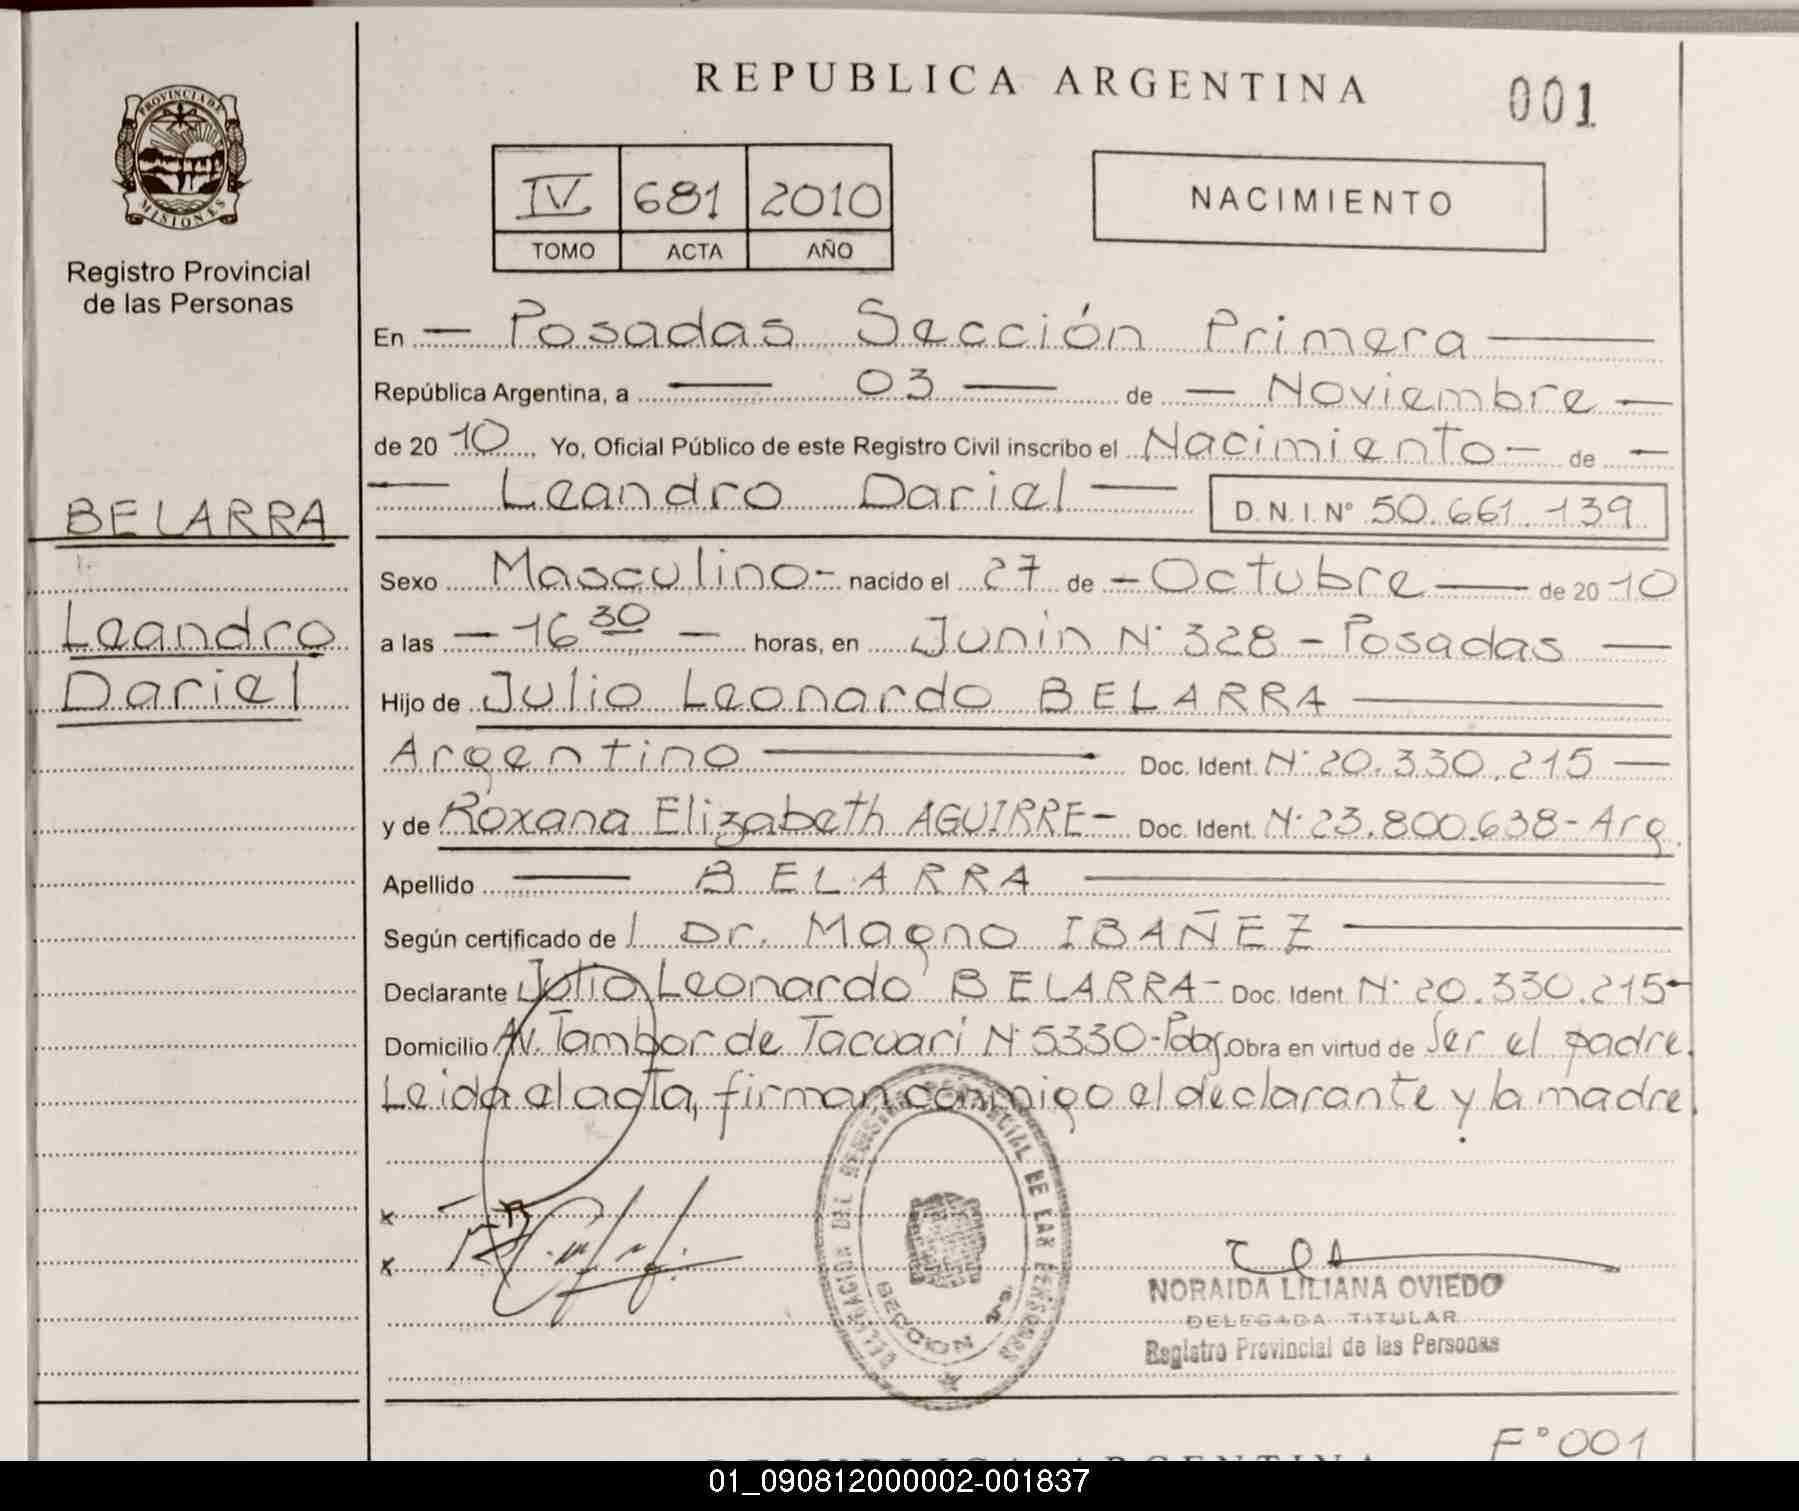 REPUBLICA ARGENTINA
001
PROVINCIA DE
MISIONES
Registro Provincial
de las Personas
IV 681 2010
TOMO ACTA AÑO
NACIMIENTO
En — Posadas Sección Primera —
República Argentina, a — 03 — de — Noviembre —
de 20 10. Yo, Oficial Público de este Registro Civil inscribo el Nacimiento — de —
— Leandro Dariel — D.N.I. Nº 50.661.139
BELARRA
Leandro
Dariel
Sexo Masculino - nacido el 27 de — Octubre — de 20 10
a las — 16 30 — horas, en Junin N° 328 - Posadas —
Hijo de Julio Leonardo BELARRA —
Argentino — Doc. Ident. N° 20.330.215 —
y de Roxana Elizabeth AGUIRRE — Doc. Ident. N° 23.800.638 - Arg.
Apellido — BELARRA —
Según certificado de l Dr. Magno IBAÑEZ —
Declarante Julio Leonardo BELARRA - Doc. Ident. N° 20.330.215 -
Domicilio Av. Tambor de Tacuari N° 5330 - Obra en virtud de Ser el padre.
Leida el acta, firman conmigo el declarante y la madre.
x
x
DELEGACION DEL REGISTRO PROVINCIAL DE LAS PERSONAS
NORAIDA LILIANA OVIEDO
DELEGADA TITULAR
Registro Provincial de las Personas
F° 001
REPUBLICA ARGENTINA
01_090812000002-001837